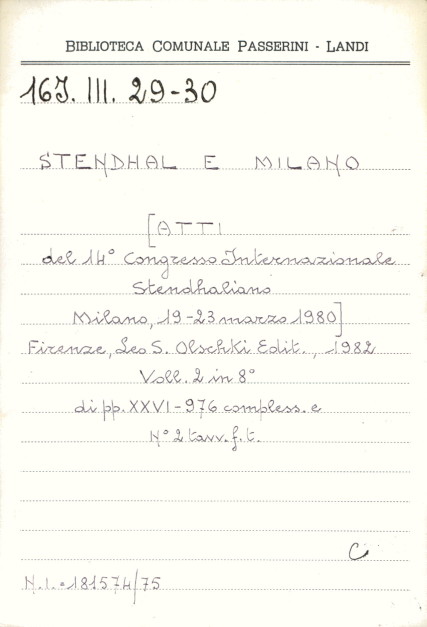 BIBLIOTECA COMUNALE PASSERINI - LANDI
16J. III. 29-30
STENDHAL E MILANO
[ATTI
del 14° Congresso Internazionale
Stendhaliano
Milano, 19-23 marzo 1980]
Firenze, Leo S. Olschki Edit., 1982
Voll. 2 in 8°
di pp. XXVI-976 compless. e
N° 2 tavv. f. t.
C
N.I. 181574/75